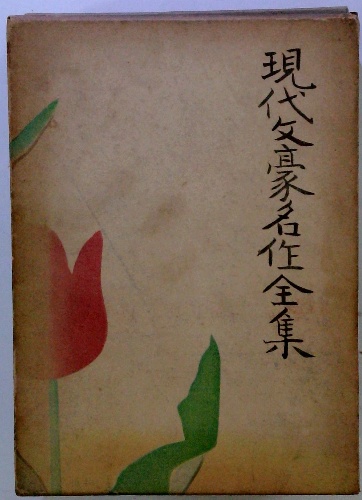 現代文豪名作全集